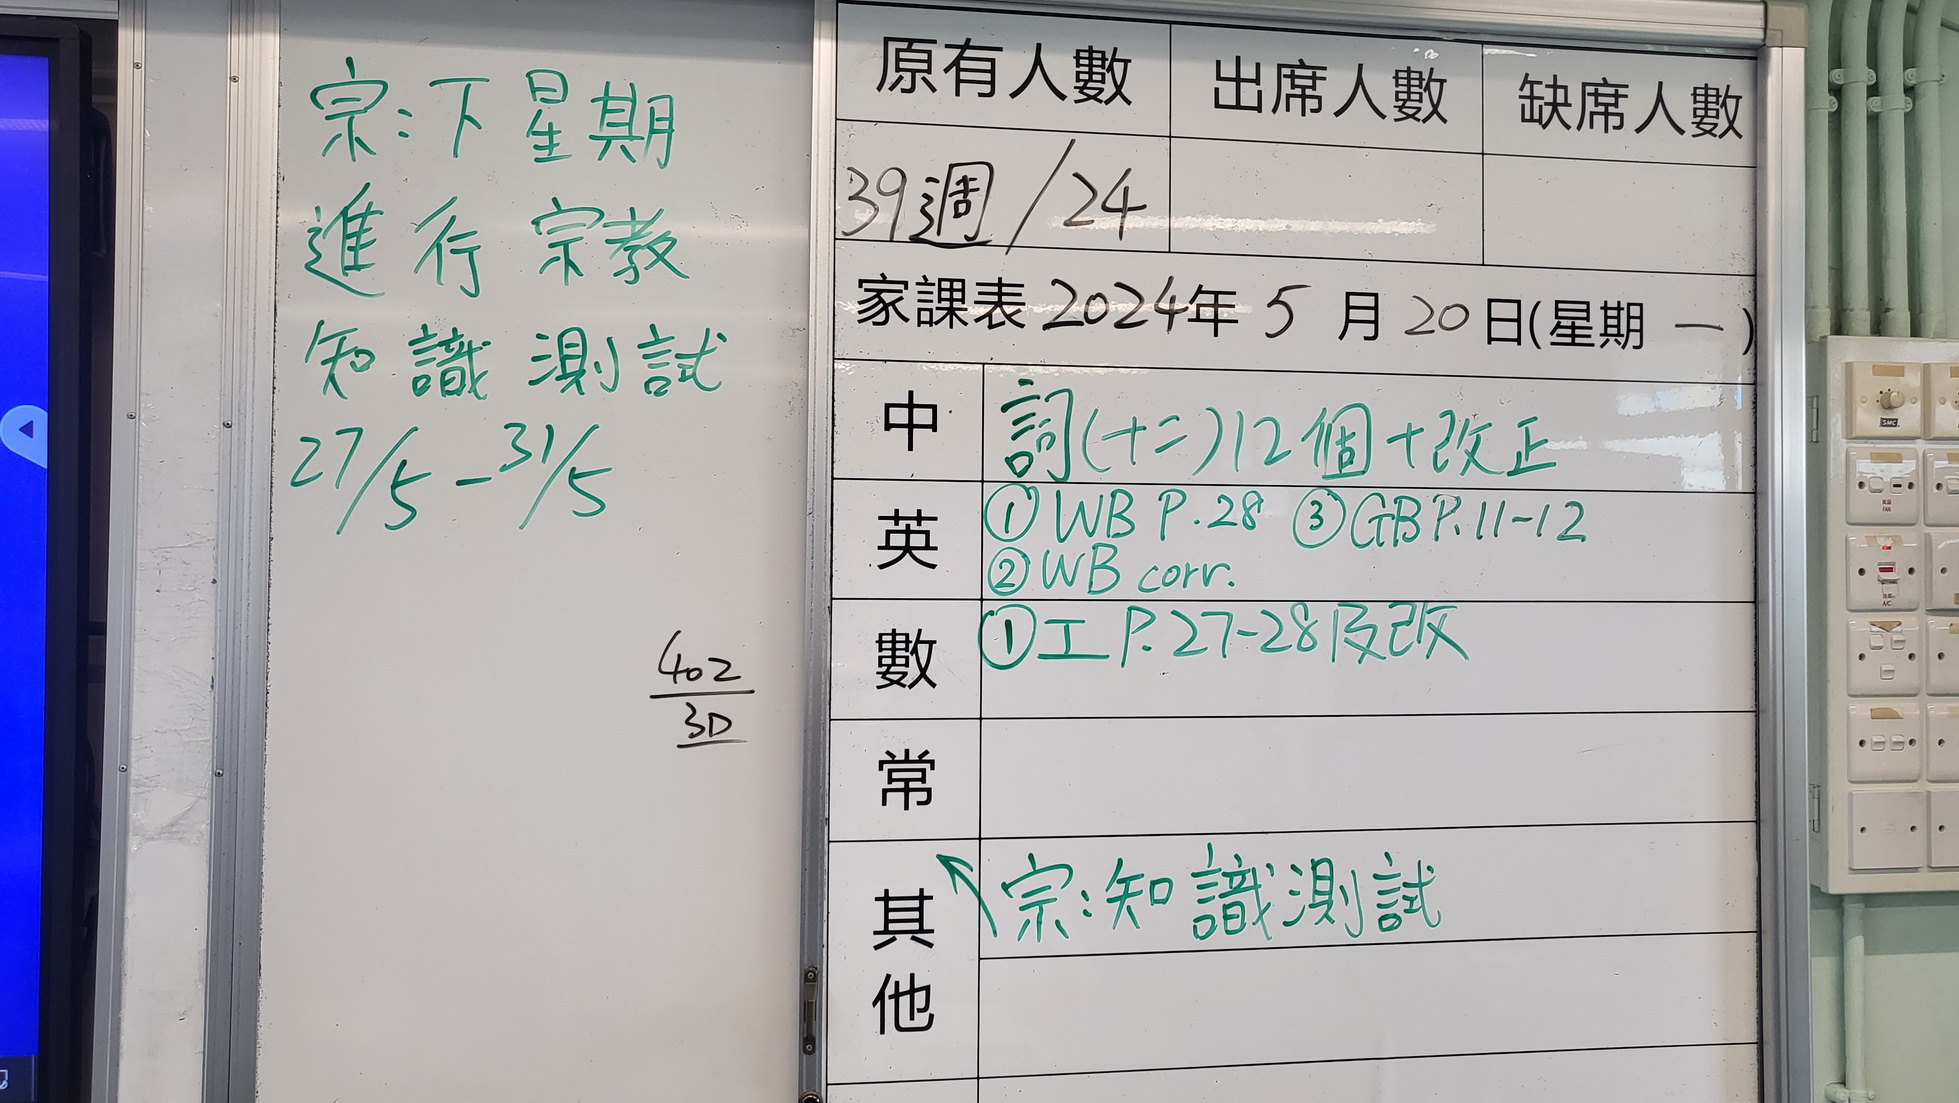 宗:下星期
進行宗教
知識測試
27/5-31/5
402
3D
原有人數 出席人數 缺席人數
39週/24
家課表2024年5月20日(星期一)
中 詞(十二)12個+改正
英 ①WB P.28 ③GB P.11-12
②WB corr.
數 ①工 P.27-28及改
常
其他 宗:知識測試